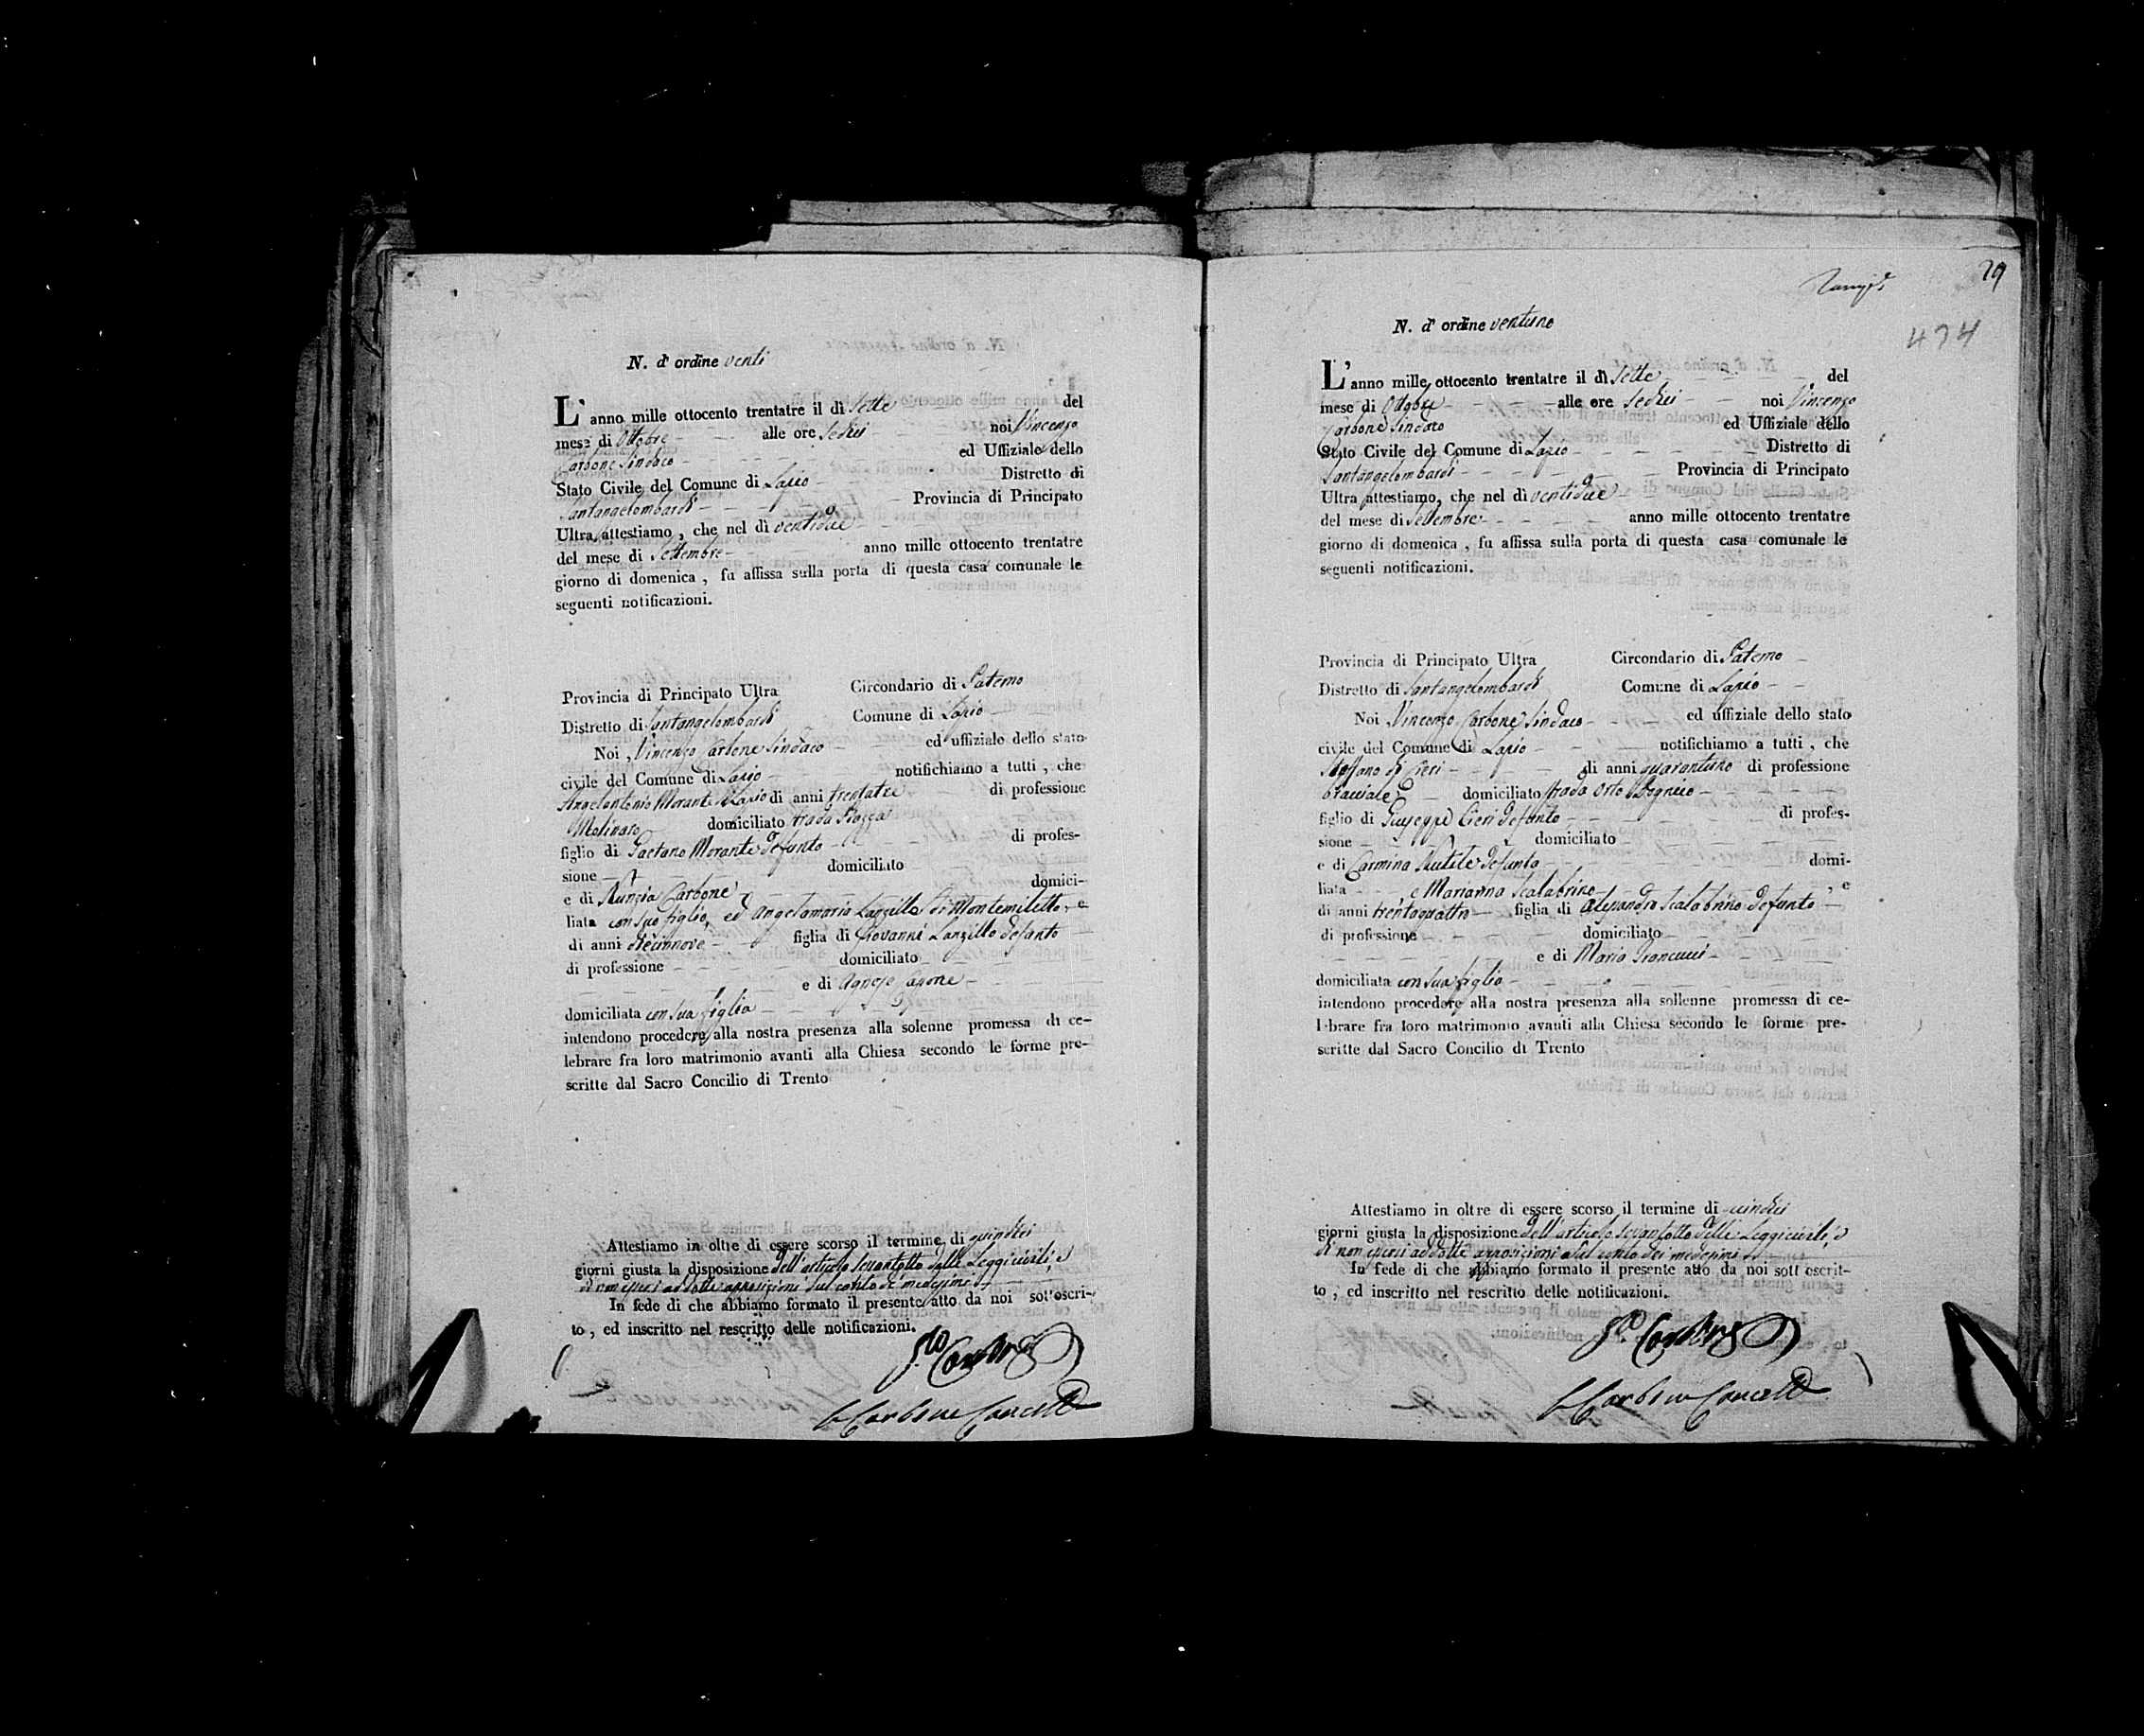 N. d' ordine venti
L' anno mille ottocento trentatre il dì Sette del
mese di Ottobre alle ore Sedici noi Vincenzo
Carbone Sindaco ed Uffiziale dello
Stato Civile del Comune di Lapio Distretto di
Santangelombardi Provincia di Principato
Ultra, attestiamo, che nel dì ventidue
del mese di Settembre anno mille ottocento trentatre
giorno di domenica, fu affissa sulla porta di questa casa comunale le
seguenti notificazioni.
Provincia di Principato Ultra Circondario di Paterno
Distretto di Santangelombardi Comune di Lapio
Noi, Vincenzo Carbone Sindaco ed uffiziale dello stato
civile del Comune di Lapio notifichiamo a tutti, che
Angelantonio Morante di Lapio di anni trentatre di professione
Molinaro domiciliato strada Piazza
figlio di Gaetano Morante defunto di profes-
sione domiciliato
e di Nunzia Carbone domici-
liata con suo figlio, ed Angelamaria Lanzillo di Montemiletto, e
di anni diecinnove figlia di Giovanni Lanzillo defunto
di professione domiciliato
e di Agnese Capone
domiciliata con sua figlia
intendono procedere alla nostra presenza alla solenne promessa di ce-
lebrare fra loro matrimonio avanti alla Chiesa secondo le forme pre-
scritte dal Sacro Concilio di Trento
Attestiamo in oltre di essere scorso il termine di quindici
giorni giusta la disposizione dell'articolo sessantotto delle Leggi civili, e
di non essersi addotte opposizioni sul conto de' medesimi
In fede di che abbiamo formato il presente atto da noi sottoscri-
to, ed inscritto nel rescritto delle notificazioni.
Carbone
Carbone Cancell
29
474
N. d' ordine ventuno
L' anno mille ottocento trentatre il dì Sette del
mese di Ottobre alle ore Sedici noi Vincenzo
Carbone Sindaco ed Uffiziale dello
Stato Civile del Comune di Lapio Distretto di
Santangelombardi Provincia di Principato
Ultra attestiamo, che nel dì ventidue
del mese di Settembre anno mille ottocento trentatre
giorno di domenica, fu affissa sulla porta di questa casa comunale le
seguenti notificazioni.
Provincia di Principato Ultra Circondario di Paterno
Distretto di Santangelombardi Comune di Lapio
Noi Vincenzo Carbone Sindaco ed uffiziale dello stato
civile del Comune di Lapio notifichiamo a tutti, che
Stefano di Cieri di anni quarantuno di professione
bracciale domiciliato strada Orto
figlio di Giuseppe Cieri defunto di profes-
sione domiciliato
e di Carmina defunta domi-
liata e Marianna Scalabrino, e
di anni trentaquattro figlia di Alesandro Scalabrino defunto
di professione domiciliato
e di Maria
domiciliata con sua figlia
intendono procedere alla nostra presenza alla sollenne promessa di ce-
lebrare fra loro matrimonio avanti alla Chiesa secondo le forme pre-
scritte dal Sacro Concilio di Trento
Attestiamo in oltre di essere scorso il termine di quindici
giorni giusta la disposizione dell'articolo sessantotto delle Leggi civili, e
di non essersi addotte opposizioni sul conto dei medesimi
In fede di che abbiamo formato il presente atto da noi sottoscrit-
to, ed inscritto nel rescritto delle notificazioni.
Carbone
Carbone Cancell